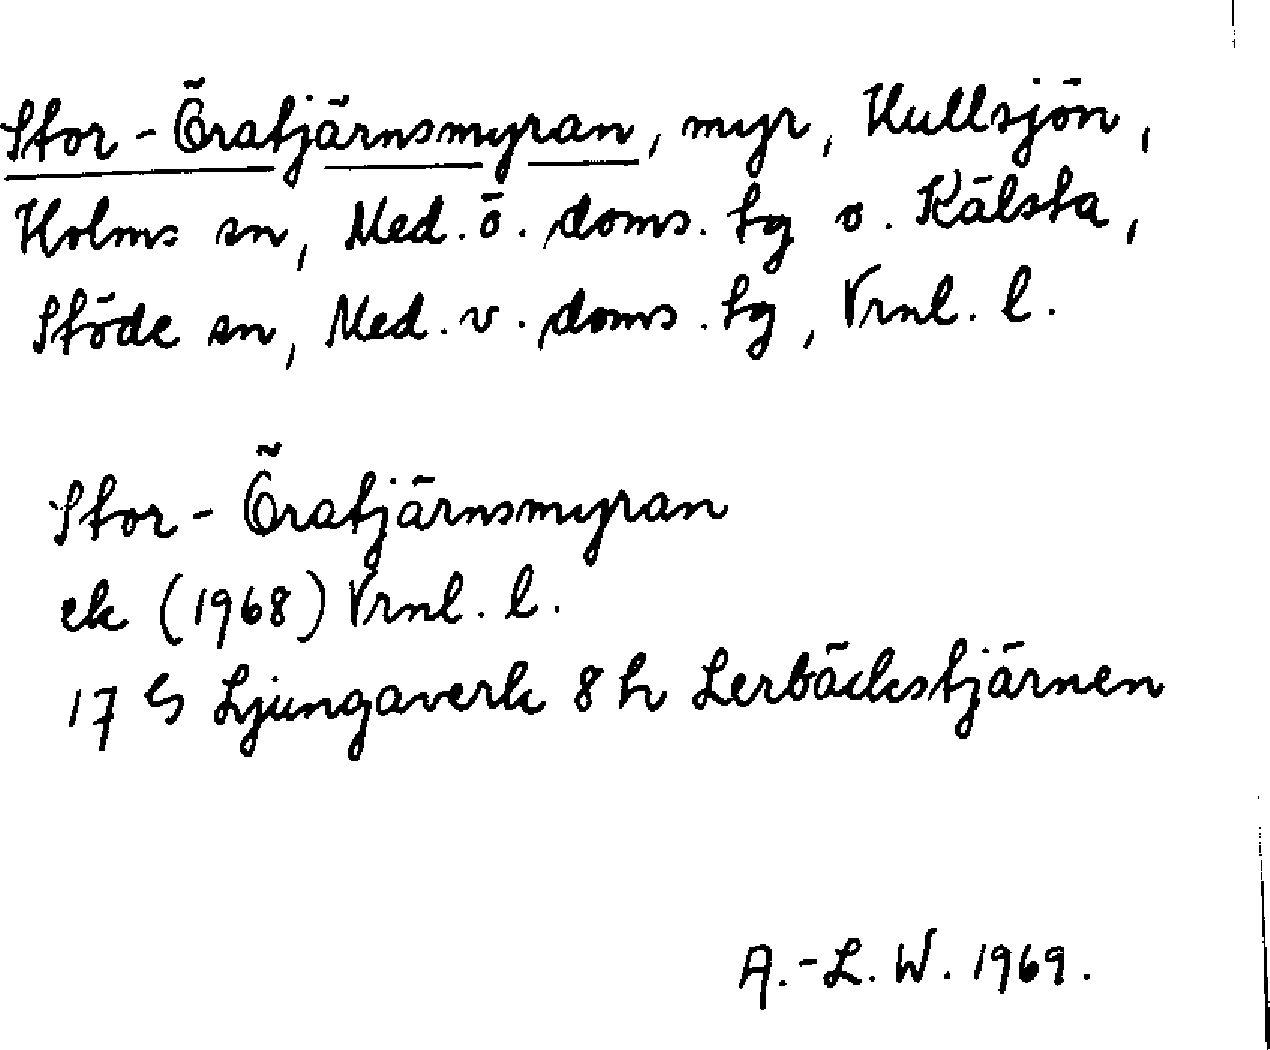 Stor-Öratjärnsmyran, myr, Kullsjön,
Holms sn, Med. ö. doms. tg o. Kälsta,
Stöde sn, Med. v. doms. tg, Vrnl. l.
Stor-Öratjärnsmyran
ek (1968) Vrnl. l.
17 G Ljungaverk 8 h Lerbäckstjärnen
A.-L. W. 1969.